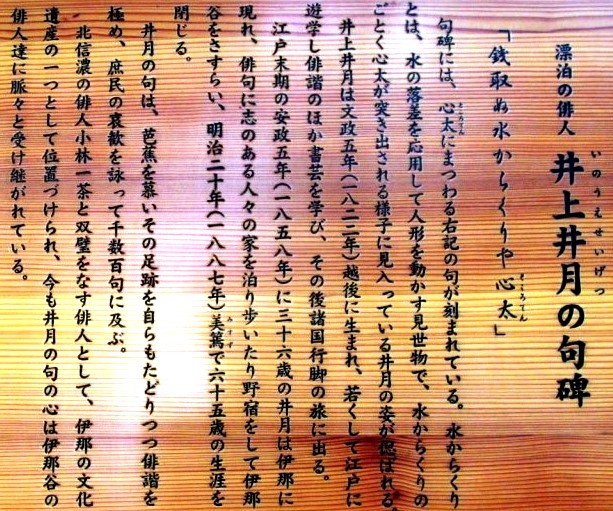 漂泊の俳人 井上井月の句碑
いのうえせいげつ
「銭取ぬ水からくりや心太」
ところてん
句碑には、心太にまつわる右記の句が刻まれている。水からくり
ところてん
とは、水の落差を応用して人形を動かす見世物で、水からくりの
ごとく心太が突き出される様子に見入っている井月の姿が偲ばれる。
井上井月は文政五年(一八二二年)越後に生まれ、若くして江戸に
遊学し俳諧のほか書芸を学び、その後諸国行脚の旅に出る。
江戸末期の安政五年(一八五八年)に三十六歳の井月は伊那に
現れ、俳句に志のある人々の家を泊り歩いたり野宿をして伊那
谷をさすらい、明治二十年(一八八七年)美篶で六十五歳の生涯を
みすず
閉じる。
井月の句は、芭蕉を慕いその足跡を自らもたどりつつ俳諧を
極め、庶民の哀歓を詠って千数百句に及ぶ。
北信濃の俳人小林一茶と双璧をなす俳人として、伊那の文化
遺産の一つとして位置づけられ、今も井月の句の心は伊那谷の
俳人達に脈々と受け継がれている。